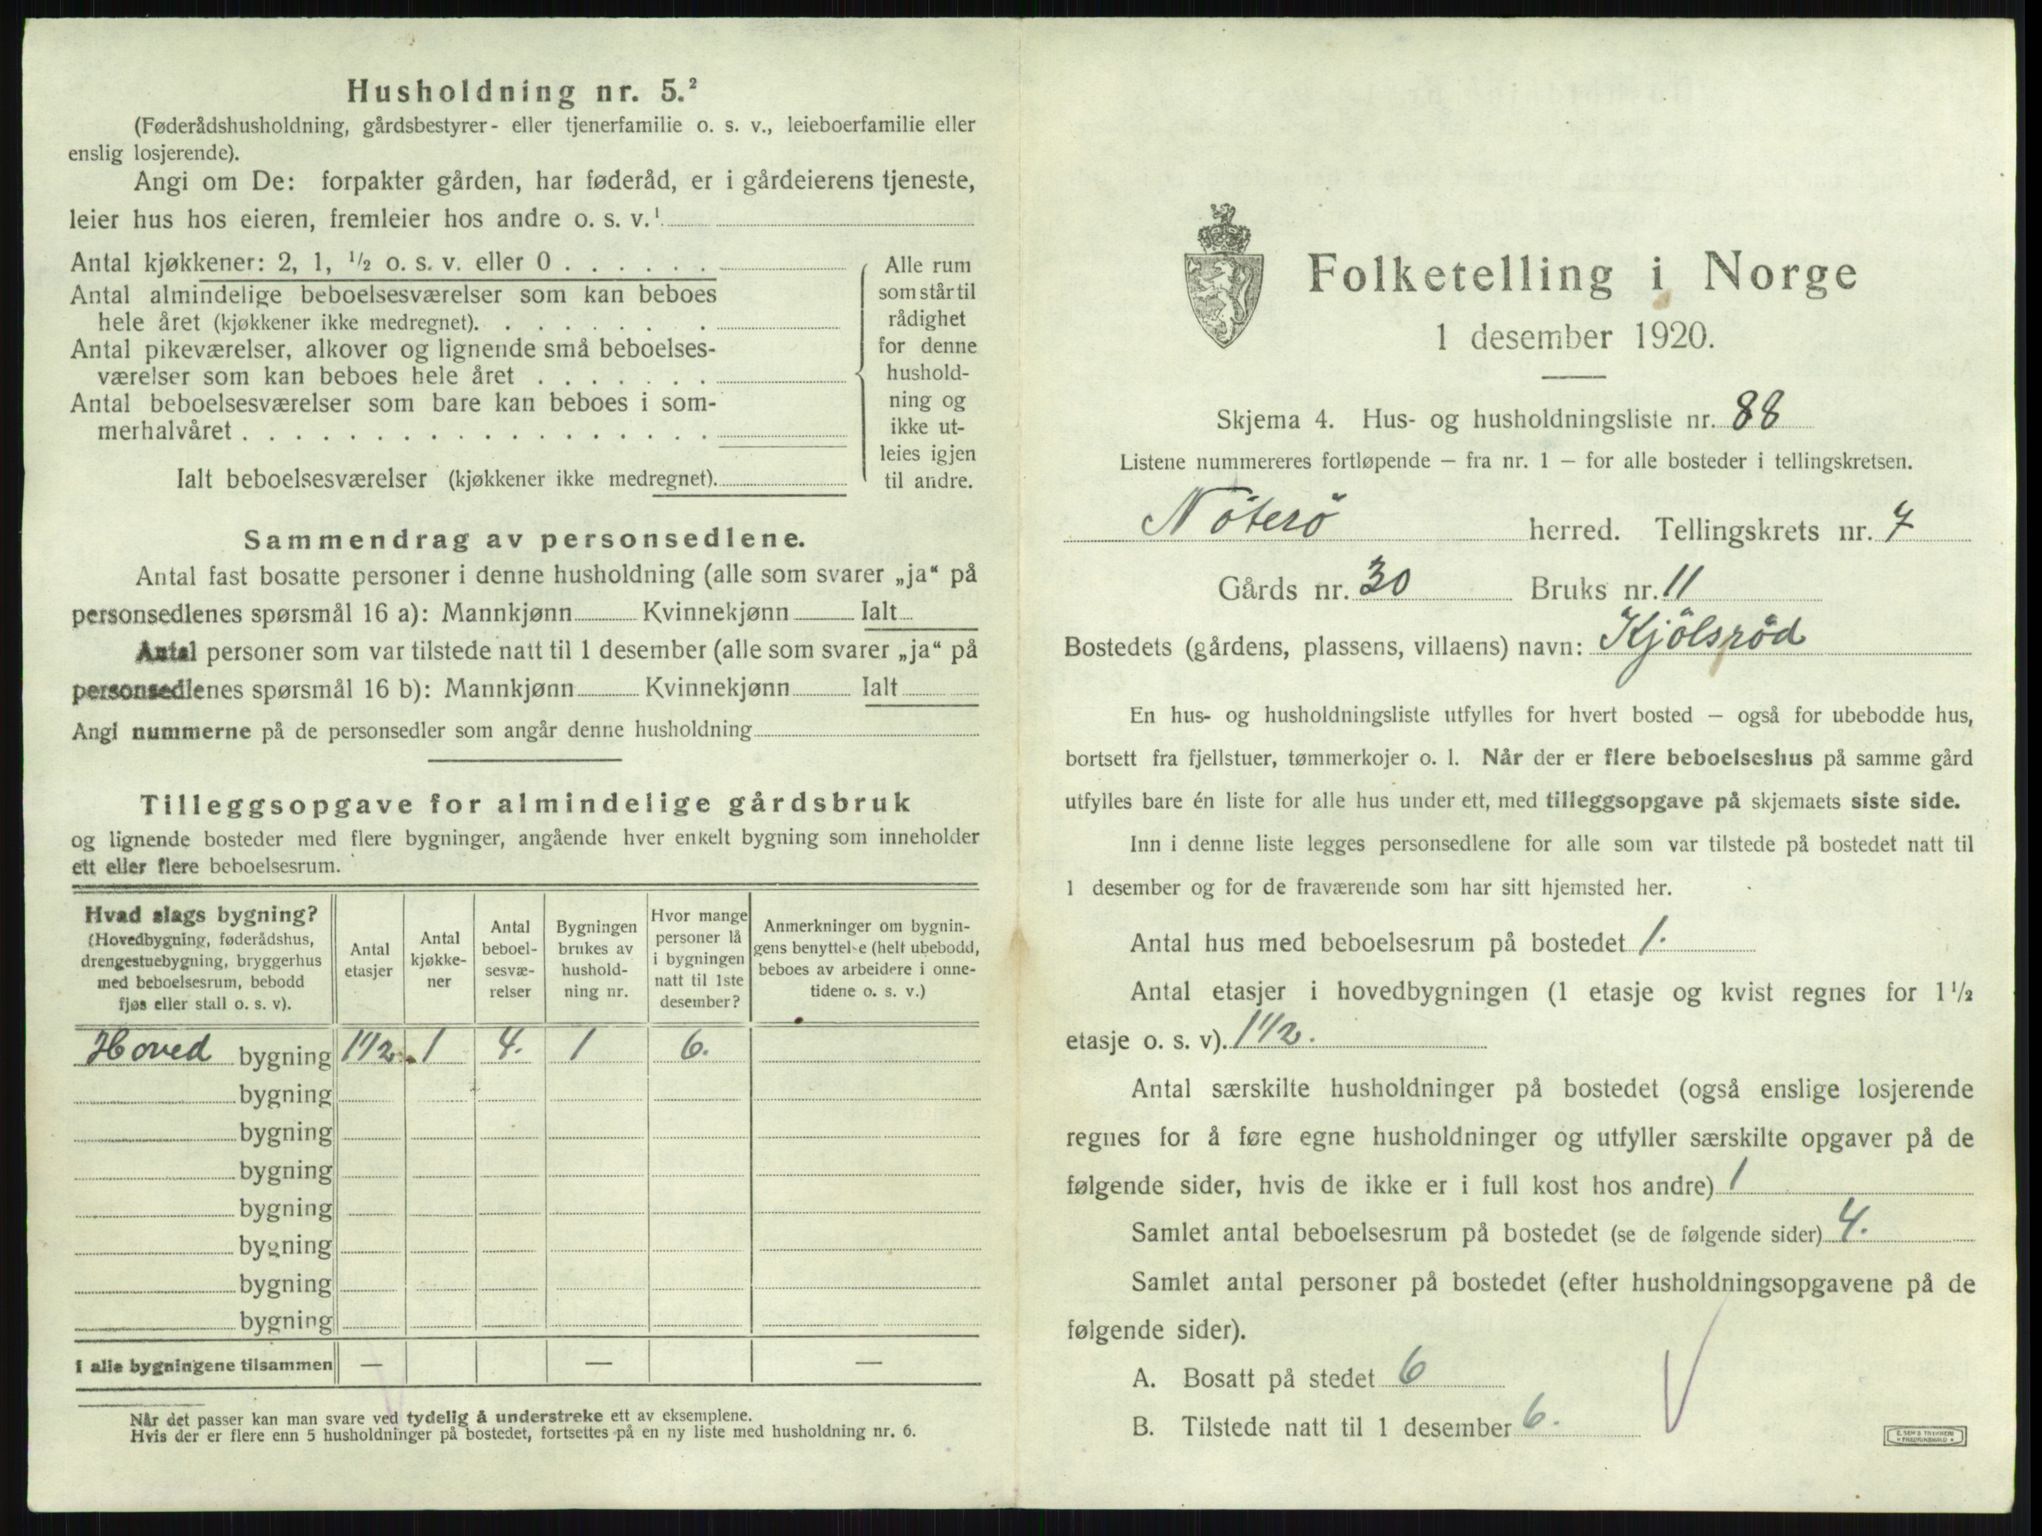 Husholdning nr. 5.²
(Føderådshusholdning, gårdsbestyrer- eller tjenerfamilie o. s. v., leieboerfamilie eller
enslig losjerende).
Angi om De: forpakter gården, har føderåd, er i gårdeierens tjeneste,
leier hus hos eieren, fremleier hos andre o. s. v.¹
Antal kjøkkener: 2, 1, ½ o. s. v. eller 0 . . . . . .
Antal almindelige beboelsesværelser som kan beboes
hele året (kjøkkener ikke medregnet). . . . . . . .
Antal pikeværelser, alkover og lignende små beboelses-
værelser som kan beboes hele året . . . . . . .
Antal beboelsesværelser som bare kan beboes i som-
merhalvåret . . . . . . . . . . . . . . . . . .
Ialt beboelsesværelser (kjøkkener ikke medregnet).
Alle rum
som står til
rådighet
for denne
hushold-
ning og
ikke ut-
leies igjen
til andre.
Sammendrag av personsedlene.
Antal fast bosatte personer i denne husholdning (alle som svarer „ja“ på
personsedlenes spørsmål 16 a): Mannkjønn Kvinnekjønn Ialt
Antal personer som var tilstede natt til 1 desember (alle som svarer „ja“ på
personsedlenes spørsmål 16 b): Mannkjønn Kvinnekjønn Ialt
Angi nummerne på de personsedler som angår denne husholdning
Tilleggsopgave for almindelige gårdsbruk
og lignende bosteder med flere bygninger, angående hver enkelt bygning som inneholder
ett eller flere beboelsesrum.
Hvad slags bygning?
(Hovedbygning, føderådshus,
drengestuebygning, bryggerhus
med beboelsesrum, bebodd
fjøs eller stall o. s. v).
Antal
etasjer
Antal
kjøkke-
ner
Antal
beboel-
sesvæ-
relser
Bygningen
brukes av
hushold-
ning nr.
Hvor mange
personer lå
i bygningen
natt til 1ste
desember?
Anmerkninger om bygnin-
gens benyttelse (helt ubebodd,
beboes av arbeidere i onne-
tidene o. s. v.)
Hoved bygning 1 1/2. 1 4. 1 6.
bygning
bygning
bygning
bygning
bygning
bygning
bygning
I alle bygningene tilsammen — — —
Når det passer kan man svare ved tydelig å understreke ett av eksemplene.
Hvis der er flere enn 5 husholdninger på bostedet, fortsettes på en ny liste med husholdning nr. 6.
Folketelling i Norge
1 desember 1920.
Skjema 4. Hus- og husholdningsliste nr. 88
Listene nummereres fortløpende — fra nr. 1 — for alle bosteder i tellingskretsen.
Nöterö herred. Tellingskrets nr. 7
Gårds nr. 30 Bruks nr. 11
Bostedets (gårdens, plassens, villaens) navn: Kjölsröd
En hus- og husholdningsliste utfylles for hvert bosted — også for ubebodde hus,
bortsett fra fjellstuer, tømmerkojer o. l. Når der er flere beboelseshus på samme gård
utfylles bare én liste for alle hus under ett, med tilleggsopgave på skjemaets siste side.
Inn i denne liste legges personsedlene for alle som var tilstede på bostedet natt til
1 desember og for de fraværende som har sitt hjemsted her.
Antal hus med beboelsesrum på bostedet 1.
Antal etasjer i hovedbygningen (1 etasje og kvist regnes for 1½
etasje o. s. v). 1 1/2.
Antal særskilte husholdninger på bostedet (også enslige losjerende
regnes for å føre egne husholdninger og utfyller særskilte opgaver på de
følgende sider, hvis de ikke er i full kost hos andre) 1
Samlet antal beboelsesrum på bostedet (se de følgende sider) 4.
Samlet antal personer på bostedet (efter husholdningsopgavene på de
følgende sider).
A. Bosatt på stedet 6
B. Tilstede natt til 1 desember 6.